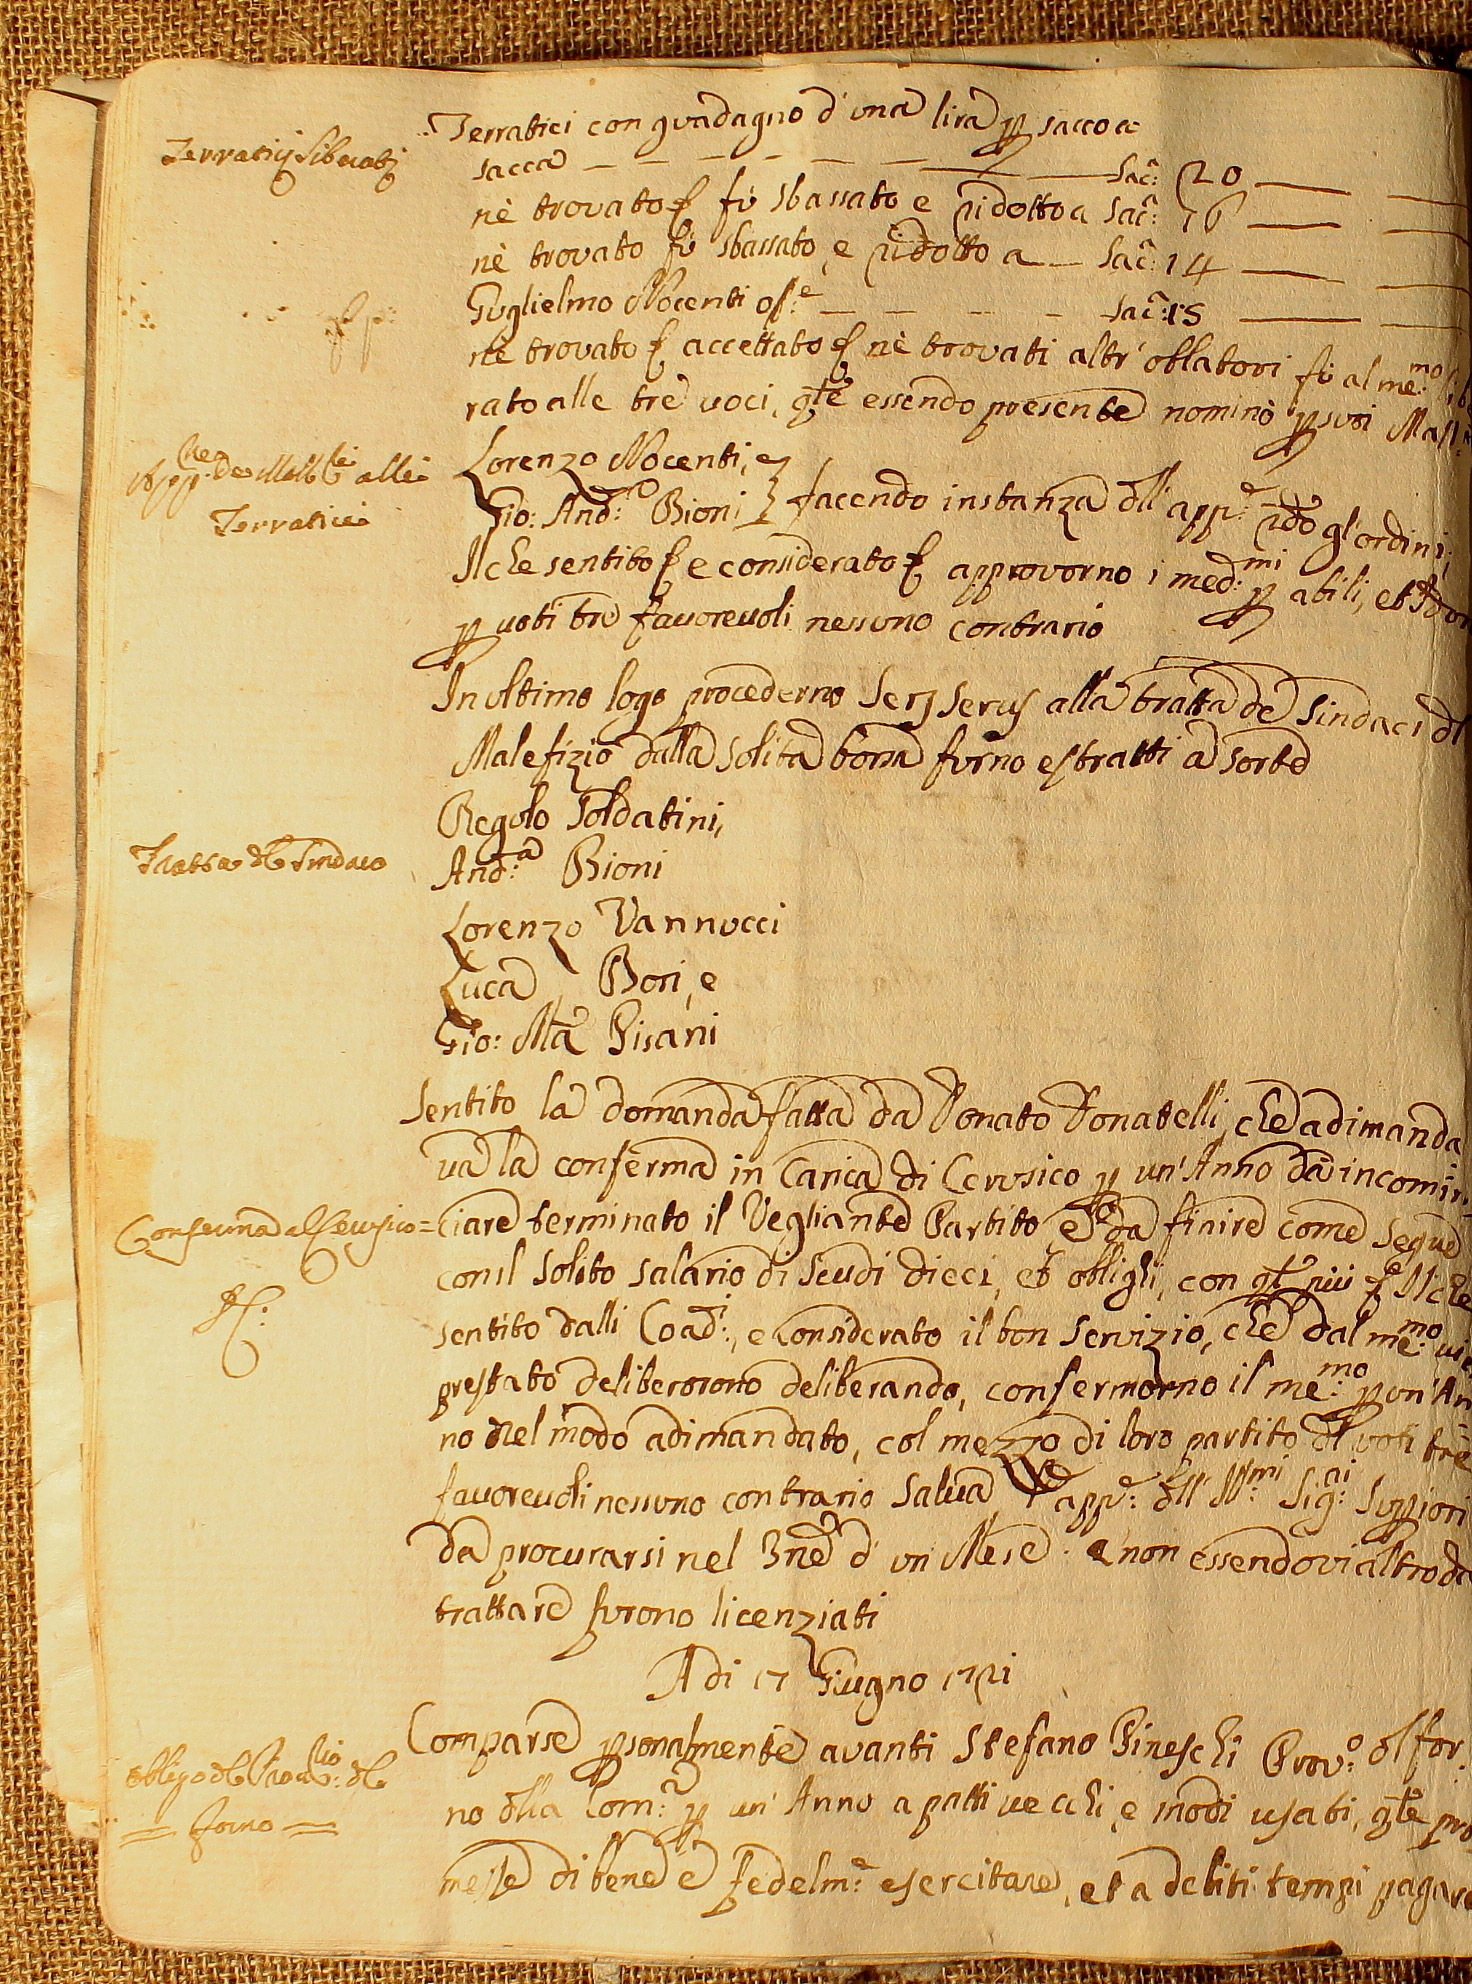 Terratici con guadagno d'una lira p saccoa
Terratici liberati
sacca — — — — — — Sac: 20 —
nè trovato fù sbassato e ridotto a Sac: 16 —
nè trovato fù sbassato, e ridotto a — Sac: 14 —
Guglielmo Nocenti off.e — — — Sac: 15 —
nè trovato accettato nè trovati altr'oblatori fù al me:mo
rato alle tre voci, qte essendo presente nominò p suoi Mall
App:ne de Mall:ri alli
Terratici
Lorenzo Nocenti, e
Gio: And:a Bioni } facendo instanza dll' app:e gl'ordini,
Il che sentito e considerato approvorno i med:mi p abili, et
p voti tre favorevoli nessuno contrario
In ultimo logo procederno Serj Serus alla tratta de Sindaci dl
Malefizio dalla solita borsa furno estratti a sorte
Regolo Soldatini,
Tratta dl Sindaco
And:a Bioni
Lorenzo Vannucci
Luca Bori, e
Gio: Ma Pisani
Sentito la domanda fatta da Donato Donatelli, che adimanda
va la conferma in Carica di Cerusico p un'Anno da incomin
Conferma al Cerusico = ciare terminato il Vegliante Partito e da finire come segue
con il solito salario di Scudi dieci, et oblighi, con qt più Il che
sentito dalli Coad:i, e considerato il bon servizio, che dal me:mo
prestato deliberorono deliberando, confermorno il me:mo p un'An
no nel modo adimandato, col mezzo di loro partito dl voti tre
favorevoli nessuno contrario Salva l'app:e dll' Ill:mi Sig:ri Suppiori
da procurarsi nel 3ne d'un Mese. e non essendovi altro da
trattare furono licenziati
A di 17 Giugno 1721
Comparse psonalmente avanti Stefano Pineschi Prov:o dl for
Obligo dl Prov: dl
= Forno =
no dlla Com: p un'Anno a patti vecchi, e modi usati, qte pro
messe di bene e fedelm:e esercitare, et a debiti tempi pagare